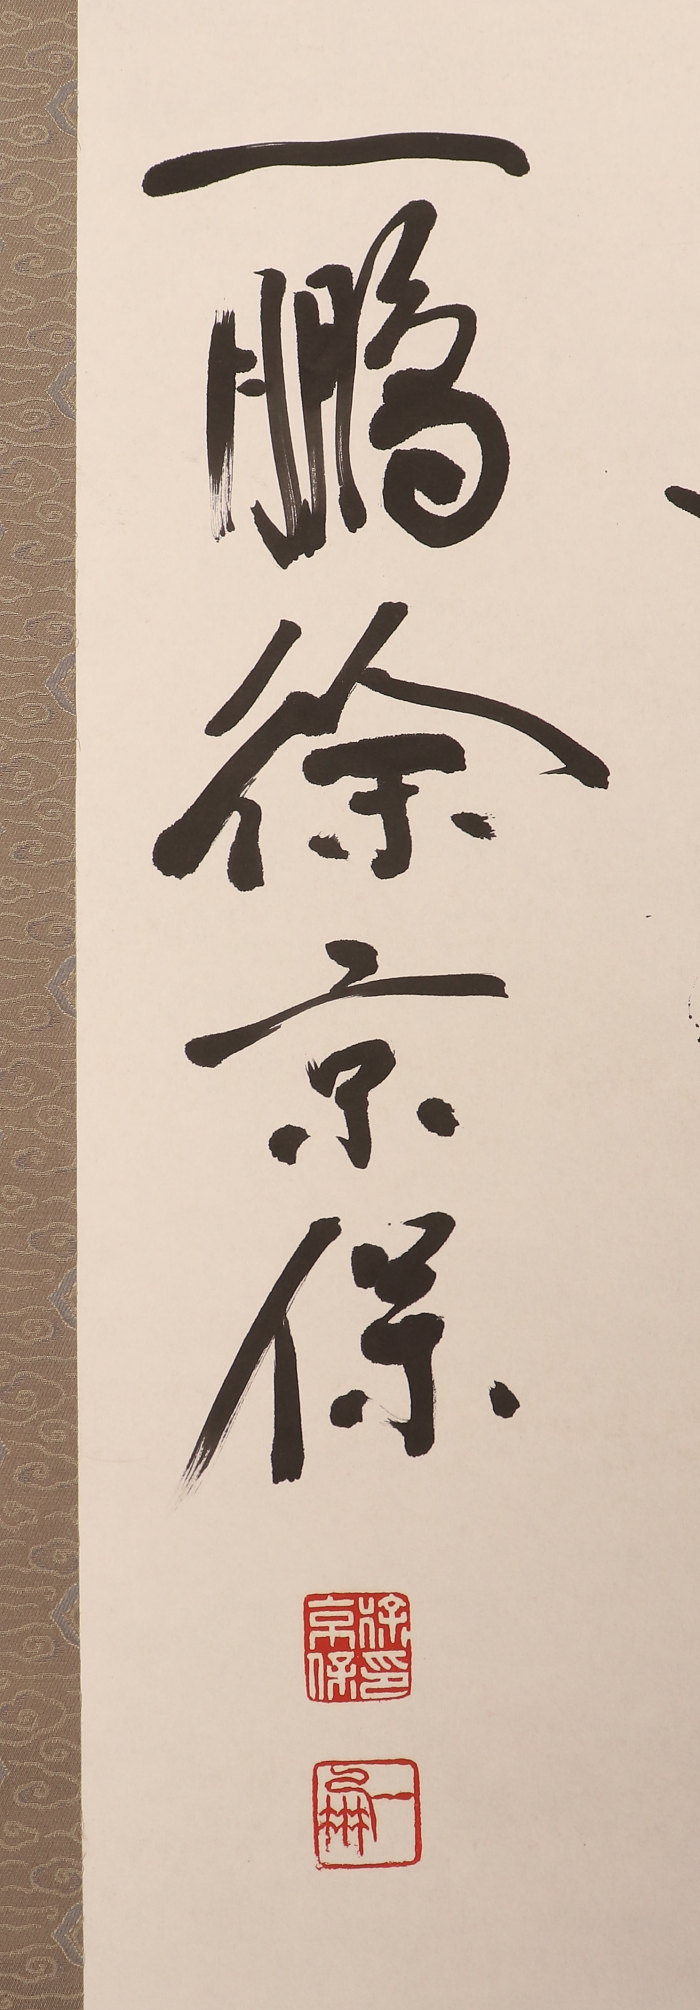 一鵬徐京保
徐印京保
一鵬